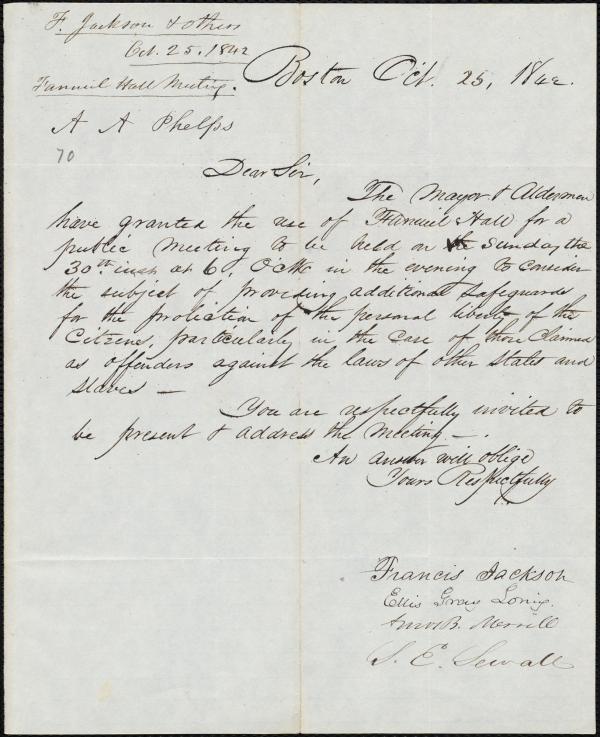 F. Jackson & others
Oct. 25, 1842
Faneuil Hall Meeting.
Boston Oct. 25, 1842.
A A Phelps
70
Dear Sir,
The Mayor & Aldermen
have granted the use of Faneuil Hall for a
public meeting to be held on Sunday the
30th inst at 6. Oclk in the evening to consider
the subject of providing additional safeguards
for the protection of the personal liberty of the
Citizens, particularly in the case of those claimed
as offenders against the laws of other States and
slaves —
You are respectfully invited to
be present & address the meeting —.
An answer will oblige
Yours Respectfully
Francis Jackson
Ellis Gray Loring.
Amos B. Merrill
S. E. Sewall